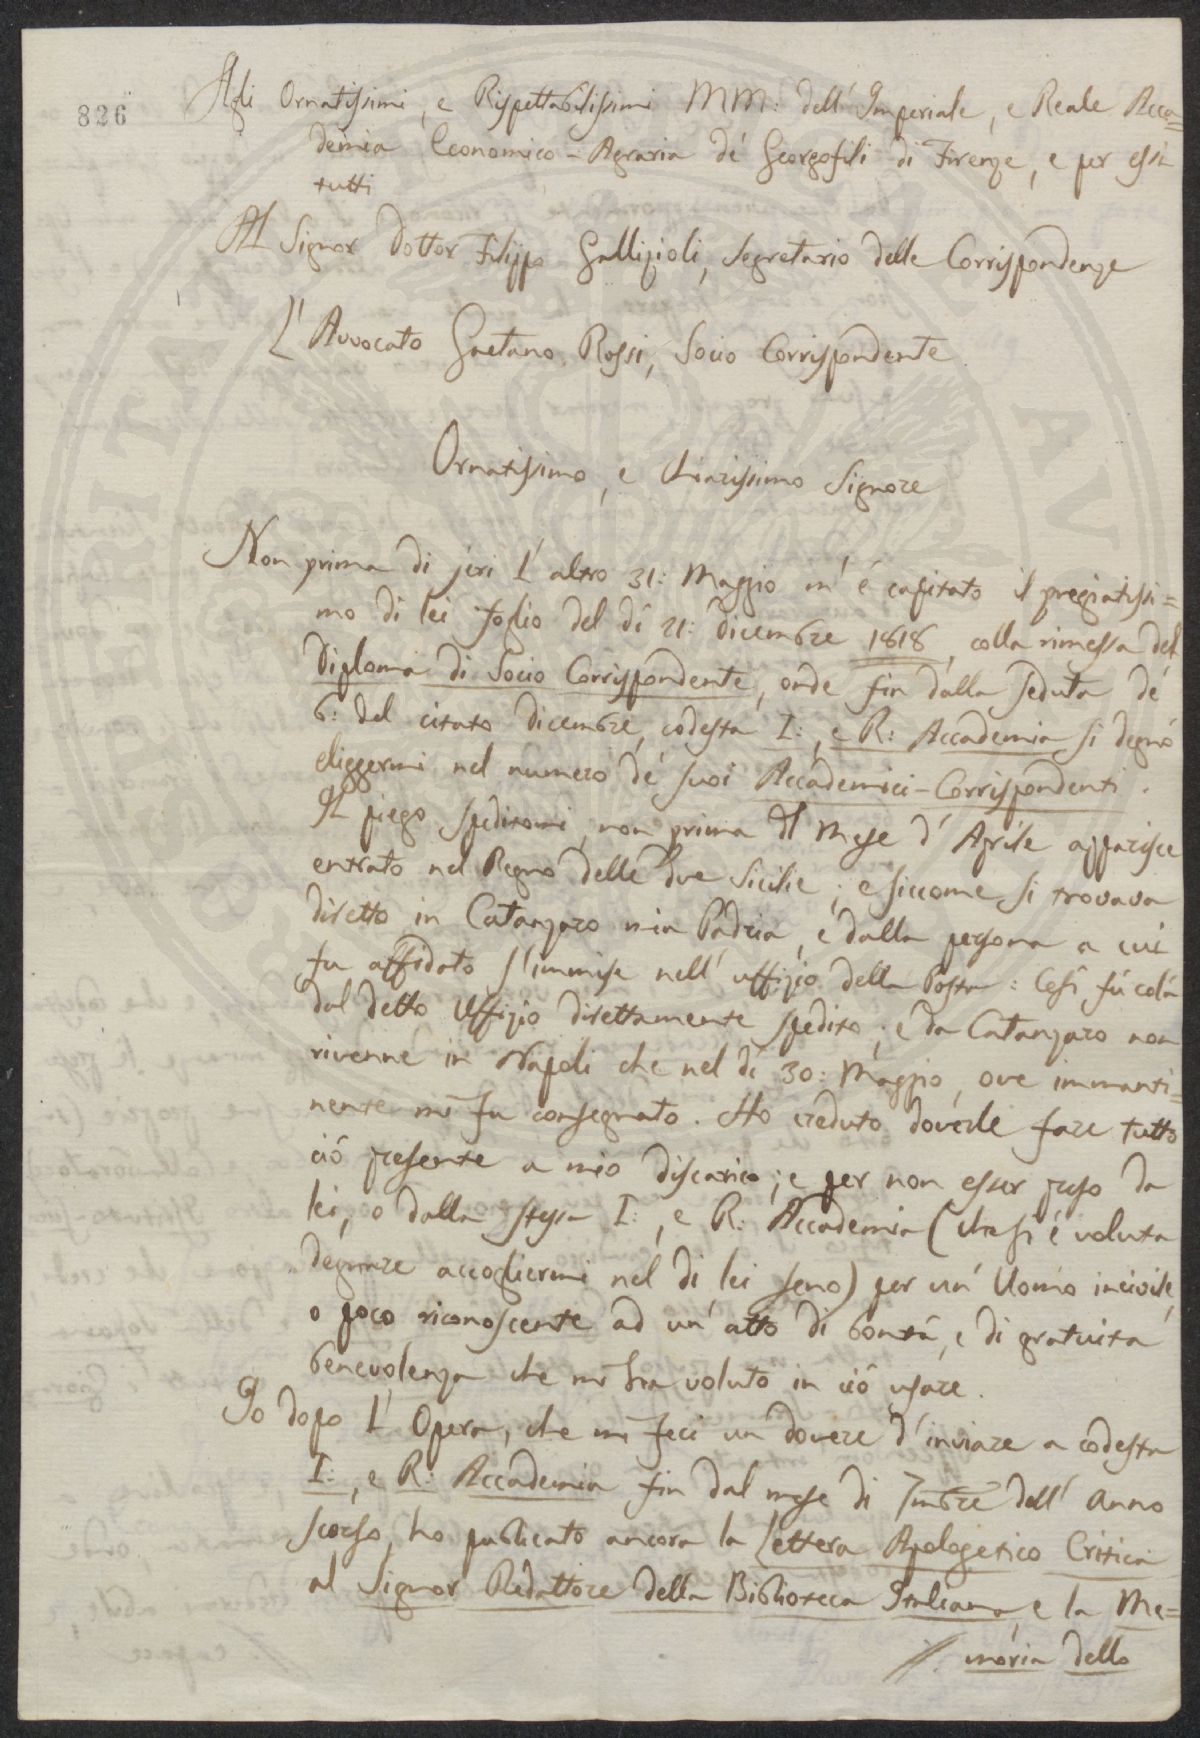 826
Agli Ornatissimi, e Rispettabilissimi MM: dell' Imperiale, e Reale Acca=
demia Economico-Agraria de' Georgofili di Firenze, e per essi
tutti
Al Signor Dottor Filippo Gallizioli, Segretario delle Corrispondenze
L' Avvocato Gaetano Rossi, Socio Corrispondente
Ornatissimo, e Chiarissimo Signore
Non prima di jeri l' altro 31: Maggio m' é capitato il pregiatissi=
mo di lei foglio del dí 21: Dicembre 1818, colla rimessa del
Diploma di Socio Corrispondente, onde fin dalla seduta de'
6: del citato Dicembre, codesta I:, e R: Accademia si degnó
eliggermi nel numero de' suoi Accademici-Corrispondenti.
Il piego speditomi, non prima del Mese d' Aprile apparisce
entrato nel Regno delle due Sicilie; e siccome si trovava
diretto in Catanzaro mia Padria, e dalla persona a cui
fu affidato s' immise nell' uffizio della Posta: Cosí fú colá
dal detto Uffizio direttamente spedito; e da Catanzaro non
rivenne in Napoli che nel dí 30: Maggio, ove immanti=
nente mi fu consegnato. Ho creduto doverle fare tutto
ció presente a mio discarico; e per non esser preso da
lei, o dalla stessa I:, e R: Accademia (che si é voluta
degnare accogliermi nel di lei seno) per un' Uomo incivile,
o poco riconoscente ad un' atto di bontá, e di gratuita
benevolenza che mi ha voluto in ció usare.
Io dopo l' Opera, che mi feci un dovere d' inviare a codesta
I:, e R: Accademia fin dal mese di 7mbre dell' anno
scorso, ho publicato ancora la Lettera Apologetico Critica
al Signor Redattore della Biblioteca Italiana, e la Me=
//. moria dello